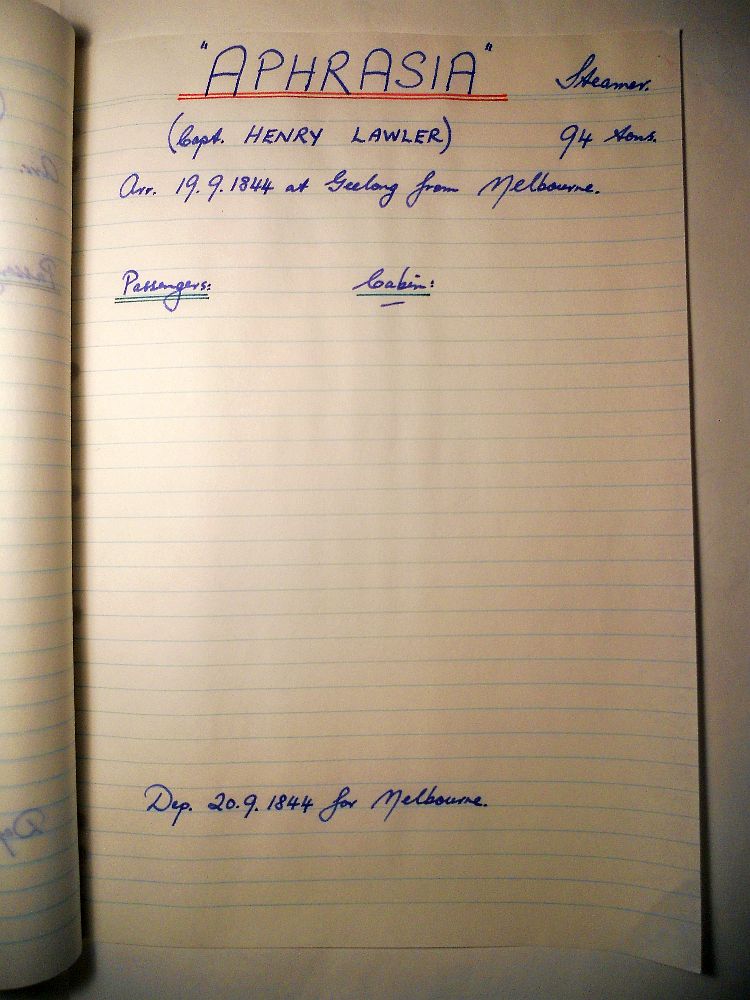 "APHRASIA" Steamer.
(Capt. HENRY LAWLER) 94 tons.
Arr. 19.9.1844 at Geelong from Melbourne.
Passengers: Cabin:
Dep. 20.9.1844 for Melbourne.